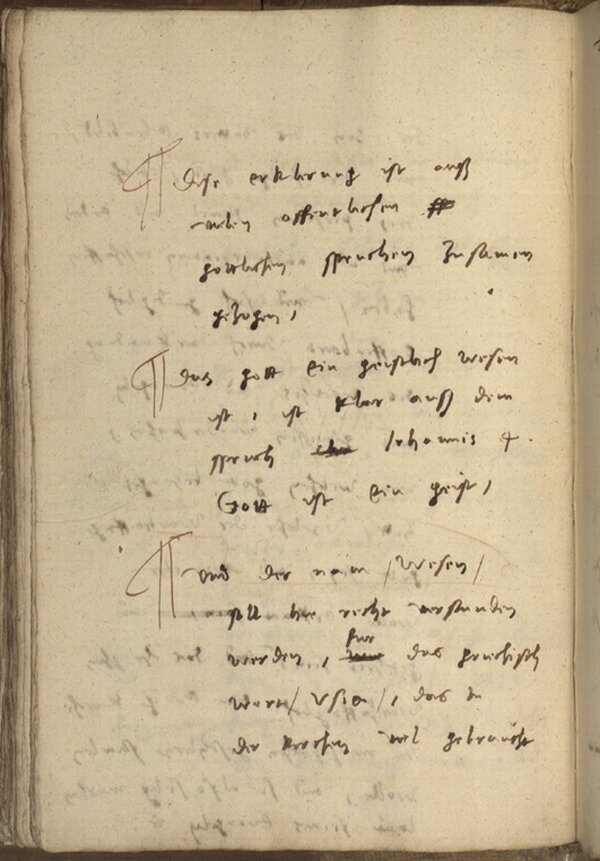 ¶ Dise erklerung ist auß
vielen offentlichen
gottlichen spruchen zusamen
gezogen,
¶ Das gott ein geistlich wesen
ist, ist klar auß dem
spruch Johannis 4.
Gott ist ein geist,
¶ Und der nam /Wesen/
soll hie recht verstanden
werden, fur das griechisch
wort /Usia/, das in
der kirchen viel gebraucht